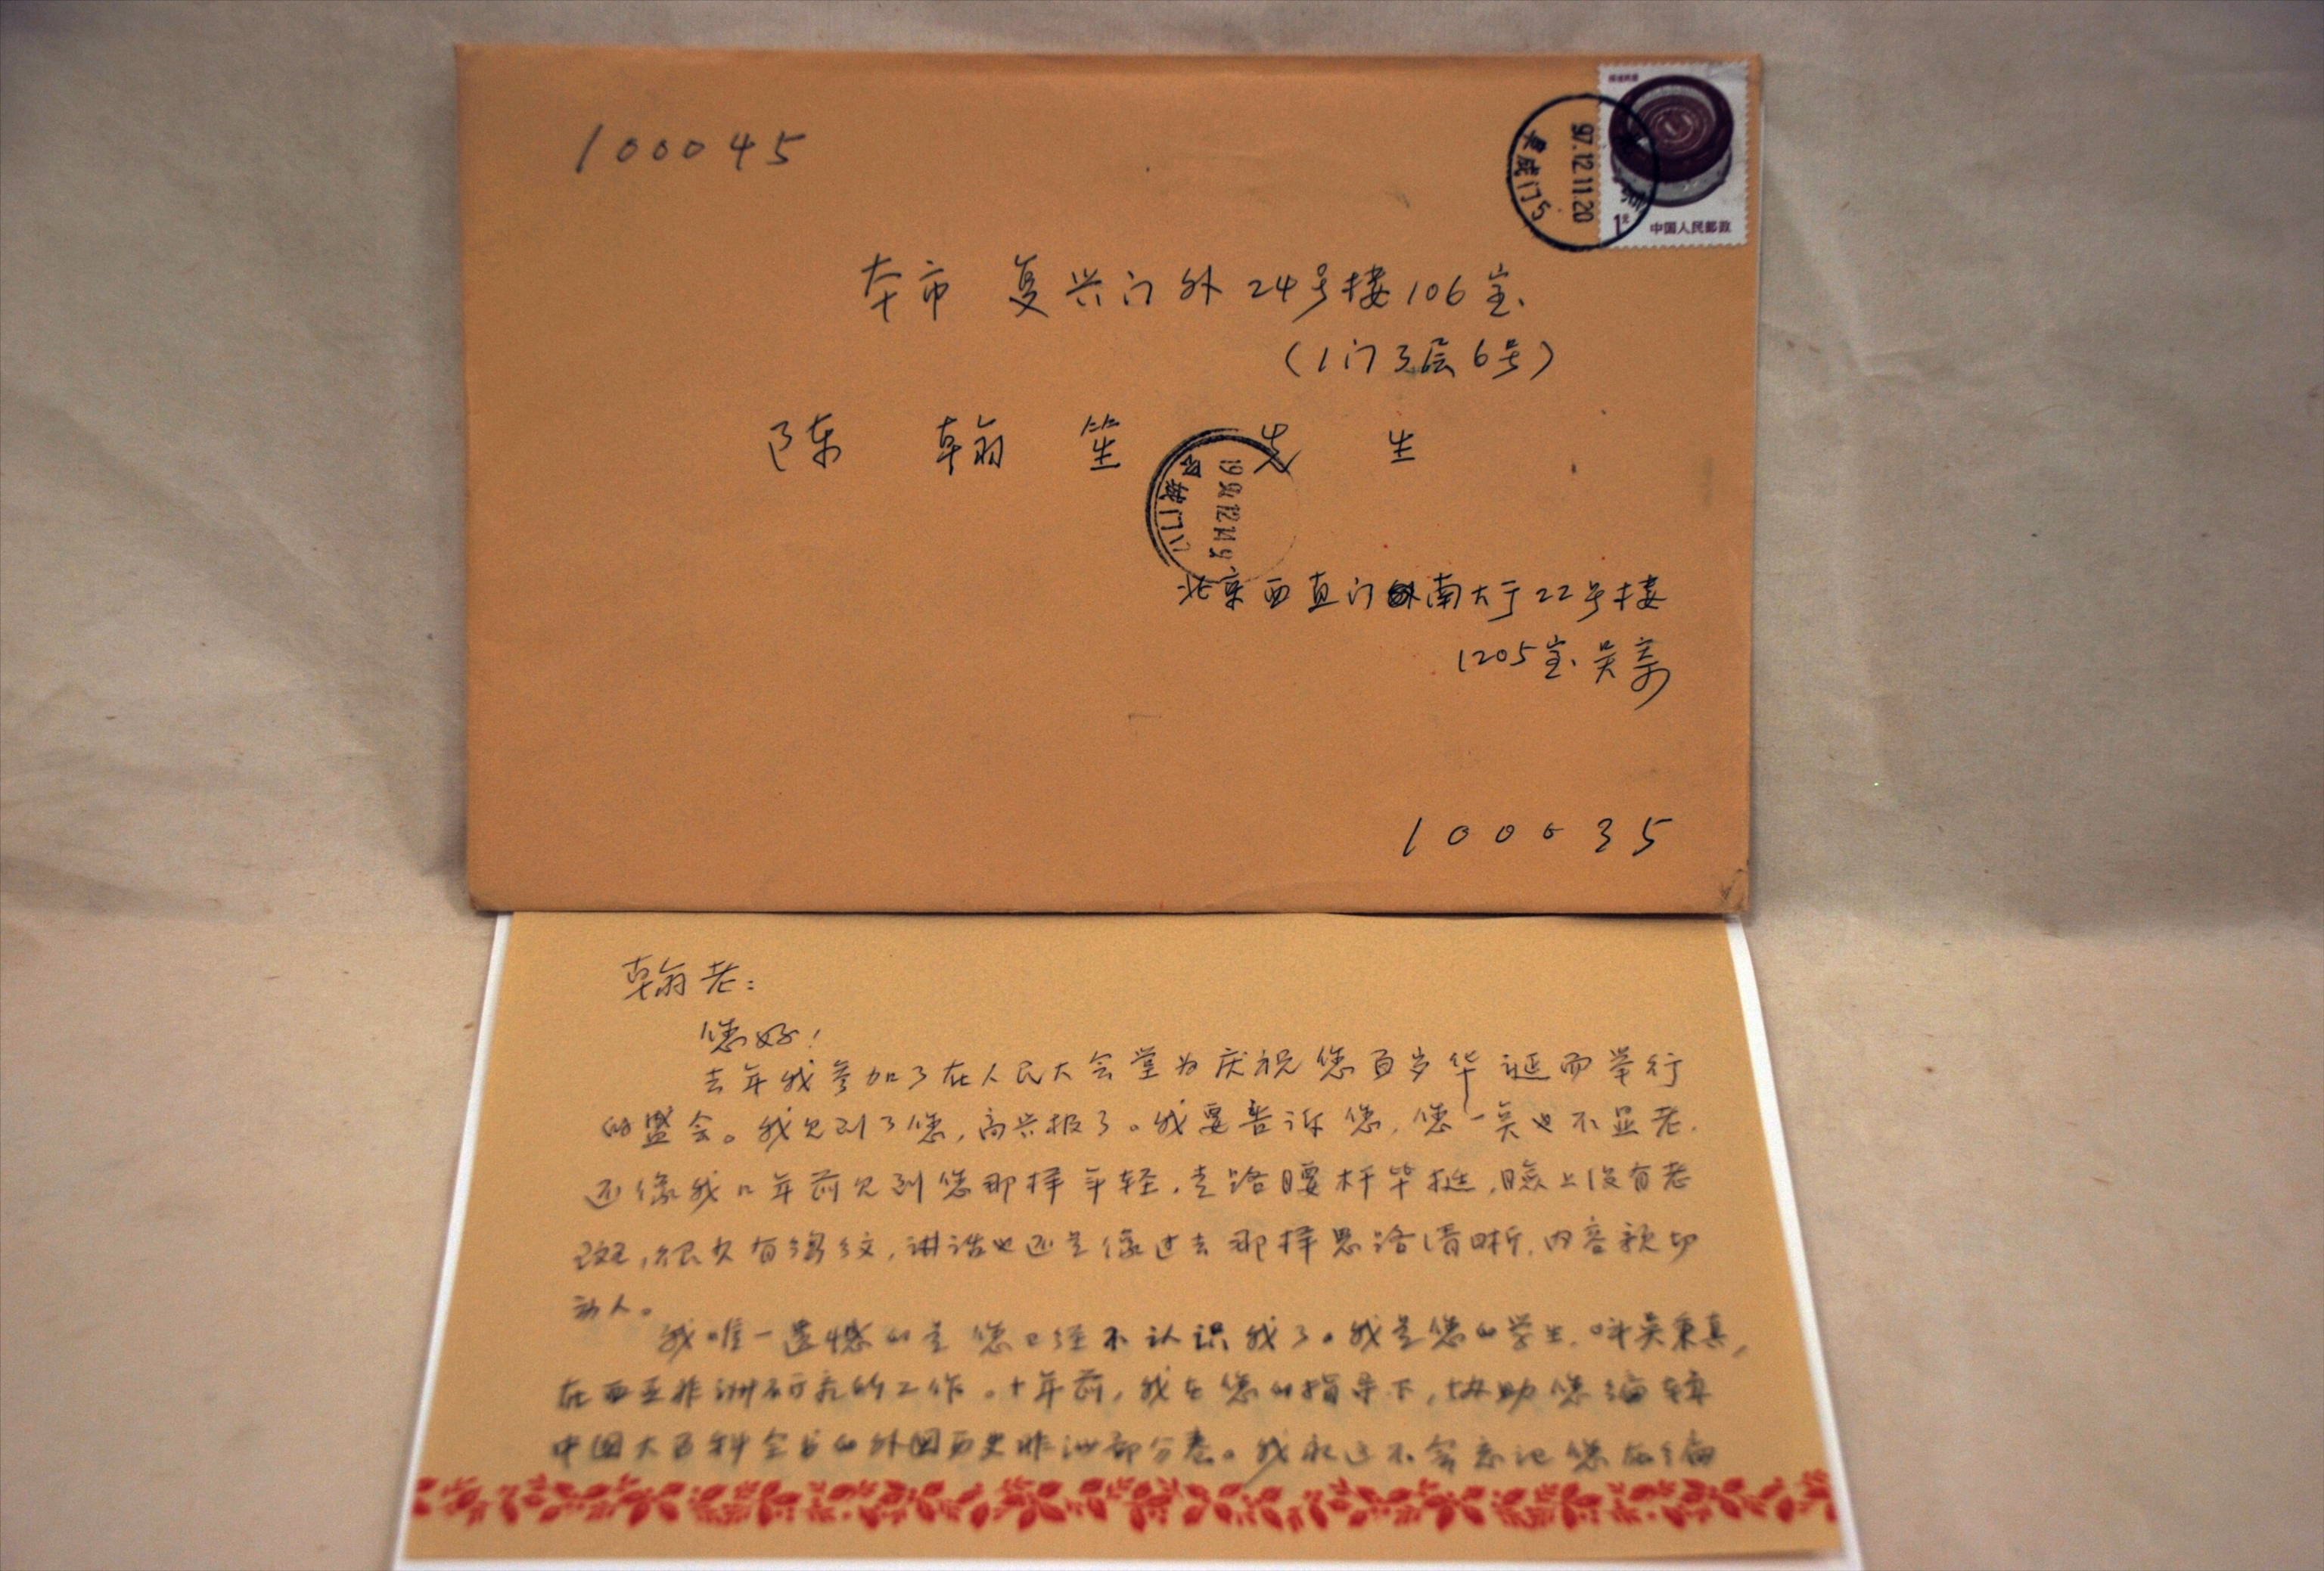 100045
福建民居
1元
中国人民邮政
97.12.11.20
阜成门5
本市 复兴门外24号楼106室
(1门3层6号)
陈翰笙 先生
北京西直门外南大于22号楼
1205室 吴
100035
翰老:
您好!
去年我参加了在人民大会堂为庆祝您百岁华诞而举行
的盛会。我见到了您,高兴极了。我要告诉您,您一点也不显老,
还像我几年前见到您那样年轻,走路腰杆笔挺,脸上没有老
斑,很少有绉纹,讲话也还是像过去那样思路清晰,内容亲切
动人。
我唯一遗憾的是您已经不认识我了。我是您的学生,叫吴秉真,
在西亚非洲研究所工作。十年前,我在您的指导下,协助您编辑
中国大百科全书的外国历史非洲部分卷。我永远不会忘记您在编